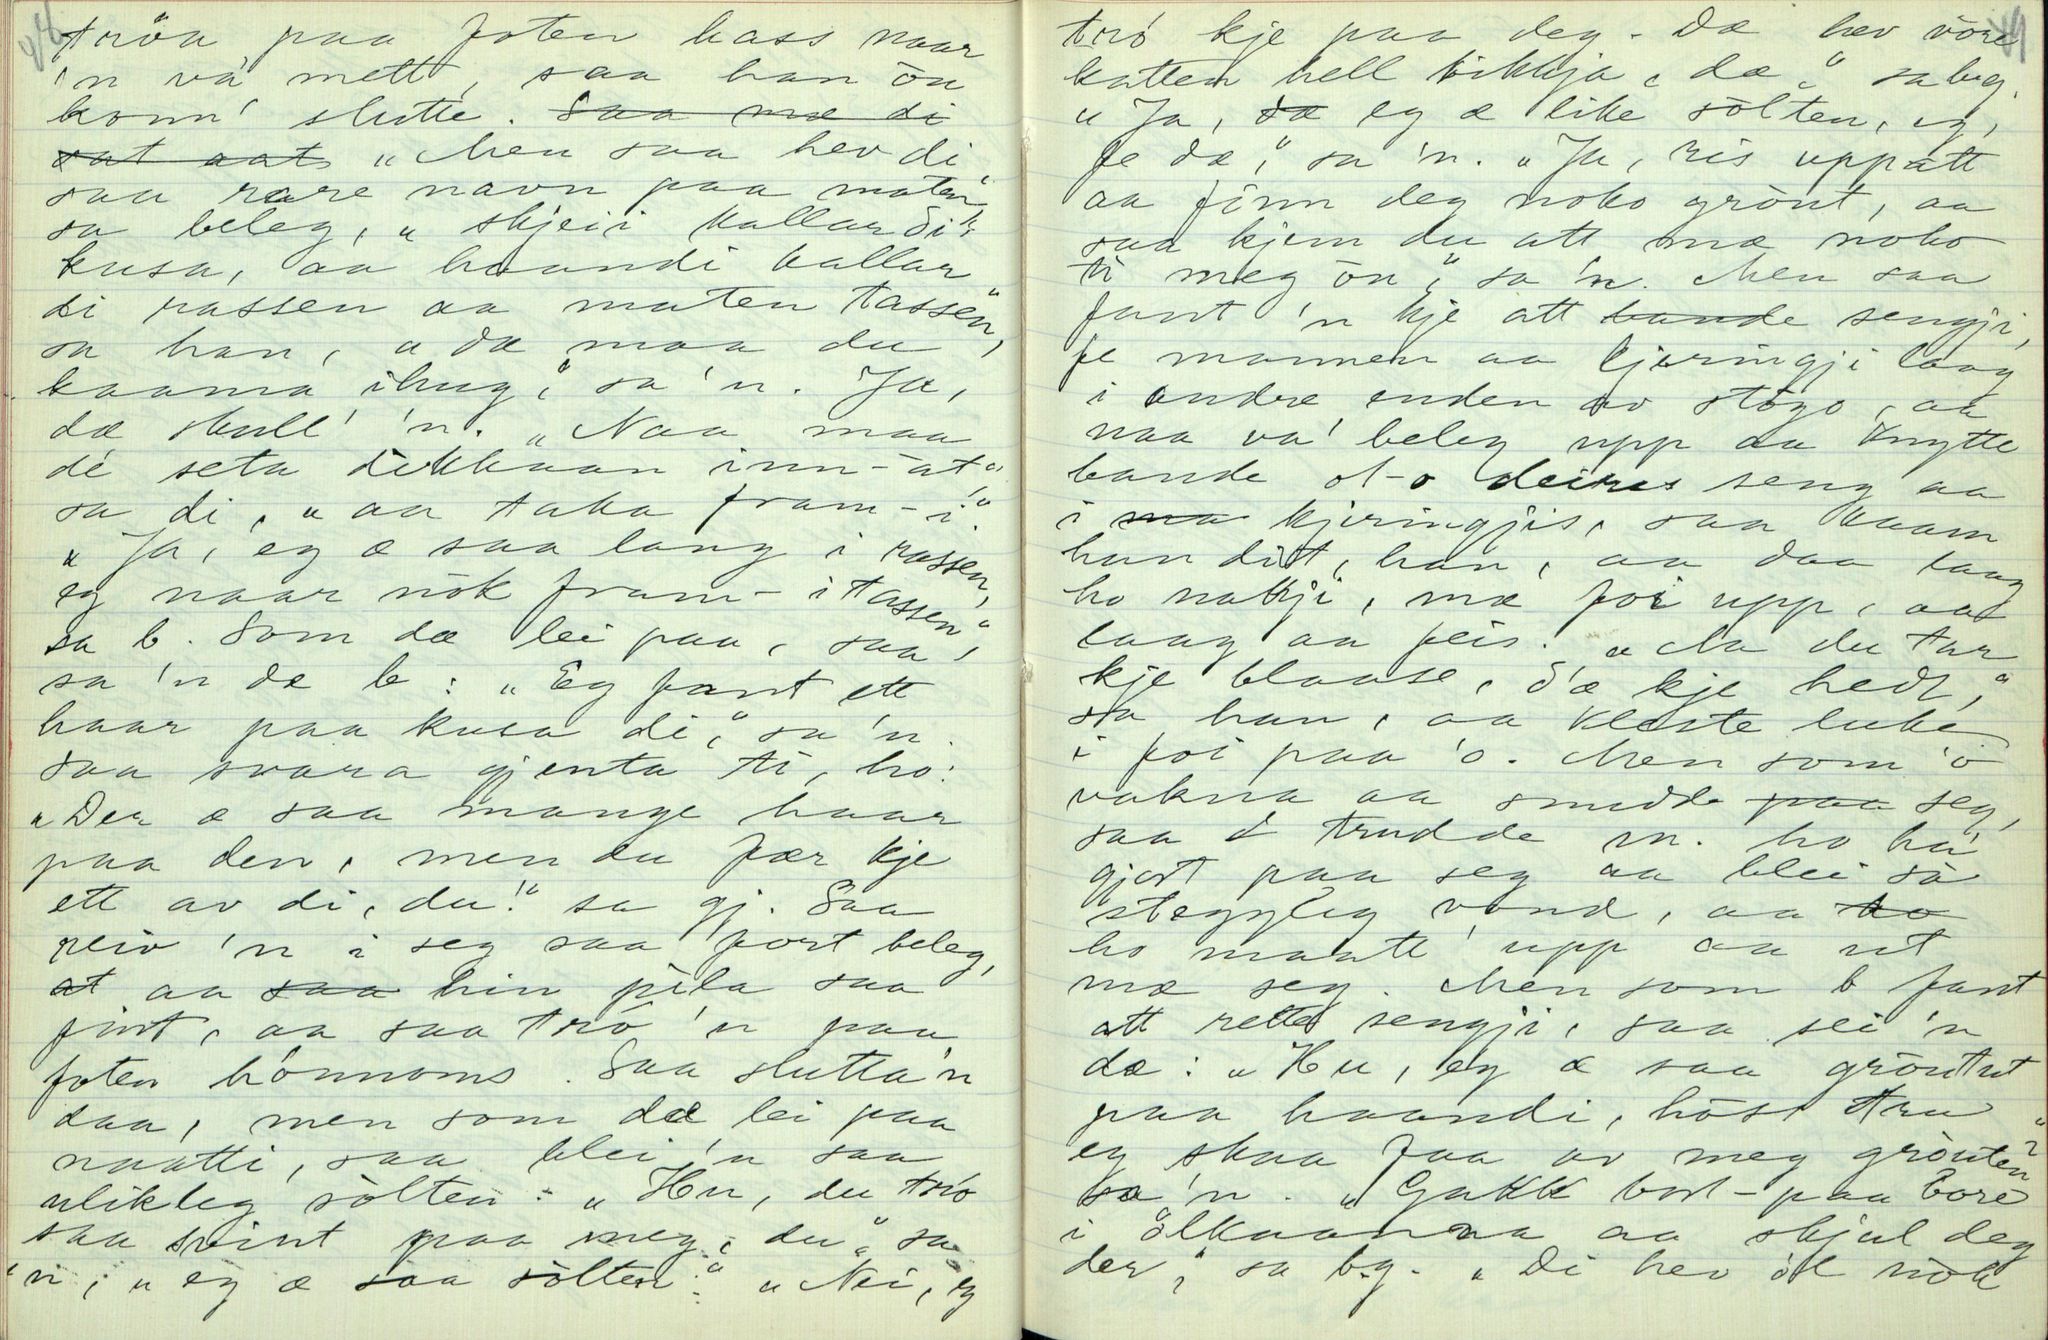 98
tröa paa foten hass naar
'n va' mett, saa han ön
konn' slutte. Saa mæ di
sat aat „Men saa hev di
saa rare navn paa maten"
sa beleg, „skjeii kallar di
kusa, aa haandi kallar
di rassen aa maten tassen",
sa han, „da maa du
kaama ihug," sa 'n. Ja,
dæ skull' 'n. „Naa maa
de seta dikkaan inn-åt,"
sa di, „aa taka fram-i."
„Ja, eg æ saa lang i rassen,
eg naar nok fram-i tassen"
sa b. Som dæ lei paa, saa
sa 'n dæ b: „Eg fant ett
haar paa kusa di," sa 'n.
Saa svara gjenta ti, ho:
„Der æ saa mange haar
paa den, men du fær kje
ett av di, du!" sa gj. Saa
reiv 'n i seg saa fort beleg,
at aa saa hin pila saa
fint, aa saa trö 'n paa
foten hönnoms. Saa slutta 'n
daa, men som dæ lei paa
naatti, saa blei 'n saa
ulikleg sölten: „Hu, du trö
saa seint paa meg, du" sa
'n, „eg æ saa sölten." „Nei, eg
99
trö kje paa deg. Dæ hev vöre
katten hell bikkja, dæ," sa beg.
„Ja, dæ eg æ like sölten, eg,
fe dæ," sa 'n. „Ja, ris uppatt
aa finn deg noko grönt, aa
saa kjem du att mæ noko
ti meg ön," sa 'n. Men saa
fant 'n kje att bande sengji,
fe mannen aa kjeringji laag
i andre enden av stögo, aa
naa va' beleg upp aa knytte
bande ot-o deires seng aa
i ma kjeringjis, saa kaam
han dit, han, aa daa laag
ho nakji, mæ foi upp, aa
laag aa feis. „Na du tar
kje blaase, d'æ kje hedt,"
sa han, aa kleste luka
i foi paa 'o. Men som 'o
vakna aa smudde paa seg,
saa trudde m. ho ha'
gjort paa seg aa blei så
steggjleg vond, aa ho
ho maatt' upp aa ut
mæ seg. Men som b fant
att rette sengji, saa sei 'n
dæ: „Hu, eg æ saa gröntut
paa haandi, höss tru
eg skaa faa av meg grönten?"
sa 'n. „Gakk bort-paa bore
i ölkaanna aa skjul deg
der," sa b.g. „Di hev öl nok